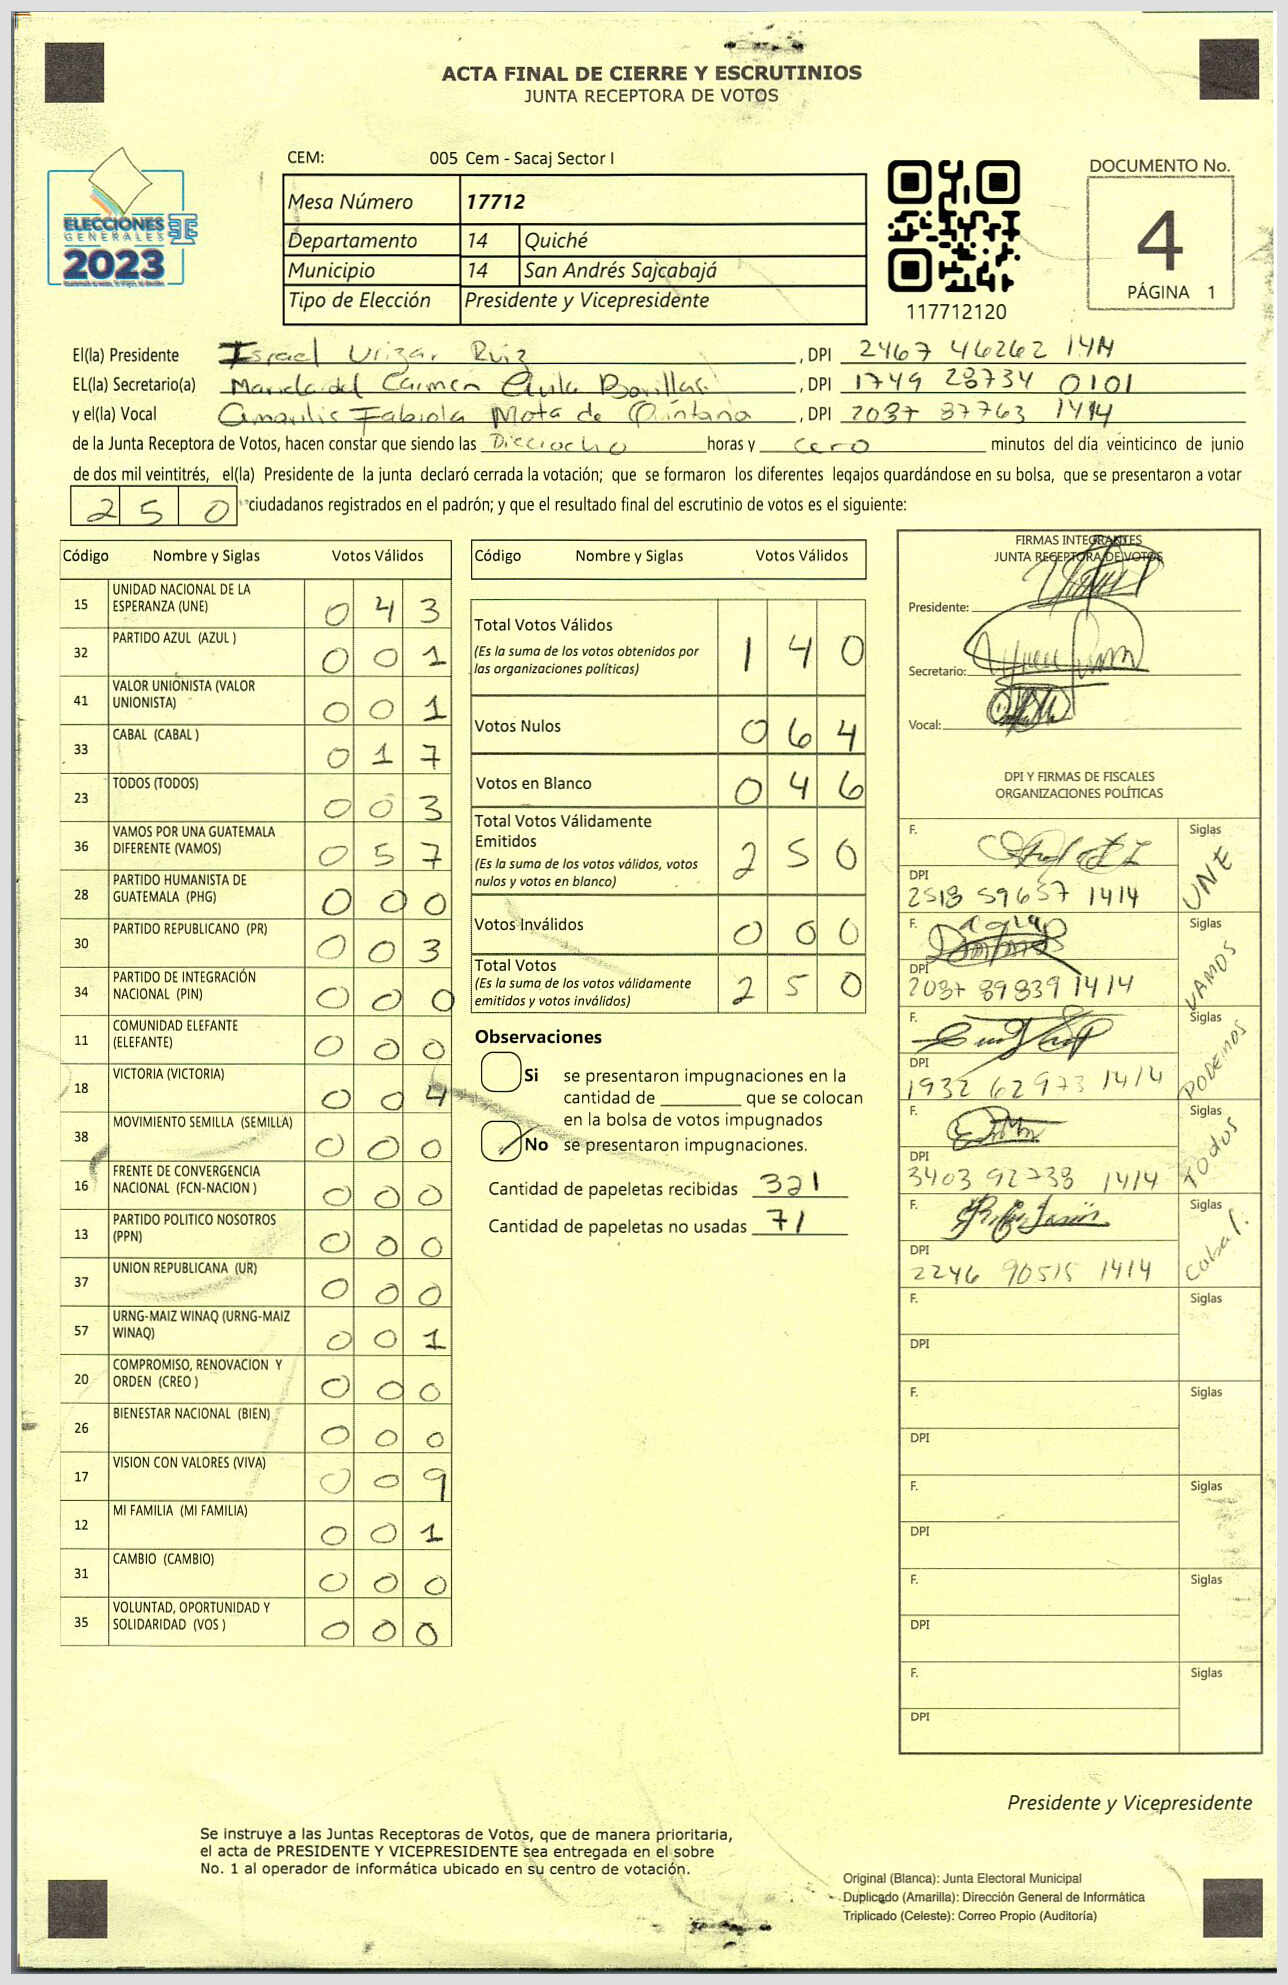 ACTA FINAL DE CIERRE Y ESCRUTINIOS
JUNTA RECEPTORA DE VOTOS
CEM: 005 Cem - Sacaj Sector I
ELECCIONES
GENERALES
2023
Mesa Número 17712
Departamento 14 Quiché
Municipio 14 San Andrés Sajcabajá
Tipo de Elección Presidente y Vicepresidente
117712120
DOCUMENTO No.
4
PÁGINA 1
El(la) Presidente Israel Urizar Ruiz, DPI 2467 46262 1414
EL(la) Secretario(a) del Carmen Avila, DPI 1749 28734 0101
y el(la) Vocal Amarilis Fabiola Mota de Quintana, DPI 2037 87763 1414
de la Junta Receptora de Votos, hacen constar que siendo las Dieciocho horas y cero minutos del día veinticinco de junio
de dos mil veintitrés, el(la) Presidente de la junta declaró cerrada la votación; que se formaron los diferentes legajos guardándose en su bolsa, que se presentaron a votar
250 ciudadanos registrados en el padrón; y que el resultado final del escrutinio de votos es el siguiente:
Código Nombre y Siglas Votos Válidos
15 UNIDAD NACIONAL DE LA ESPERANZA (UNE) 0 4 3
32 PARTIDO AZUL (AZUL ) 0 0 1
41 VALOR UNIONISTA (VALOR UNIONISTA) 0 0 1
33 CABAL (CABAL ) 0 1 7
23 TODOS (TODOS) 0 0 3
36 VAMOS POR UNA GUATEMALA DIFERENTE (VAMOS) 0 5 7
28 PARTIDO HUMANISTA DE GUATEMALA (PHG) 0 0 0
30 PARTIDO REPUBLICANO (PR) 0 0 3
34 PARTIDO DE INTEGRACIÓN NACIONAL (PIN) 0 0 0
11 COMUNIDAD ELEFANTE (ELEFANTE) 0 0 0
18 VICTORIA (VICTORIA) 0 0 4
38 MOVIMIENTO SEMILLA (SEMILLA) 0 0 0
16 FRENTE DE CONVERGENCIA NACIONAL (FCN-NACION ) 0 0 0
13 PARTIDO POLITICO NOSOTROS (PPN) 0 0 0
37 UNION REPUBLICANA (UR) 0 0 0
57 URNG-MAIZ WINAQ (URNG-MAIZ WINAQ) 0 0 1
20 COMPROMISO, RENOVACION Y ORDEN (CREO ) 0 0 0
26 BIENESTAR NACIONAL (BIEN) 0 0 0
17 VISION CON VALORES (VIVA) 0 0 9
12 MI FAMILIA (MI FAMILIA) 0 0 1
31 CAMBIO (CAMBIO) 0 0 0
35 VOLUNTAD, OPORTUNIDAD Y SOLIDARIDAD (VOS ) 0 0 0
Código Nombre y Siglas Votos Válidos
Total Votos Válidos 1 4 0
(Es la suma de los votos obtenidos por las organizaciones políticas)
Votos Nulos 0 6 4
Votos en Blanco 0 4 6
Total Votos Válidamente Emitidos 2 5 0
(Es la suma de los votos válidos, votos nulos y votos en blanco)
Votos Inválidos 0 0 0
Total Votos 2 5 0
(Es la suma de los votos válidamente emitidos y votos inválidos)
Observaciones
Si se presentaron impugnaciones en la
cantidad de ________ que se colocan
en la bolsa de votos impugnados
No se presentaron impugnaciones.
Cantidad de papeletas recibidas 321
Cantidad de papeletas no usadas 71
FIRMAS INTEGRANTES
JUNTA RECEPTORA DE VOTOS
Presidente:
Secretario:
Vocal:
DPI Y FIRMAS DE FISCALES
ORGANIZACIONES POLÍTICAS
F. Siglas UNE
DPI 2518 59657 1414
F. Siglas VAMOS
DPI 2037 89839 1414
F. Siglas PODEMOS
DPI 1932 62973 1414
F. Siglas TOdos
DPI 3403 92738 1414
F. Siglas Cabal.
DPI 2246 90515 1414
F. Siglas
DPI
F. Siglas
DPI
F. Siglas
DPI
F. Siglas
DPI
F. Siglas
DPI
Presidente y Vicepresidente
Se instruye a las Juntas Receptoras de Votos, que de manera prioritaria,
el acta de PRESIDENTE Y VICEPRESIDENTE sea entregada en el sobre
No. 1 al operador de informática ubicado en su centro de votación.
Original (Blanca): Junta Electoral Municipal
Duplicado (Amarilla): Dirección General de Informática
Triplicado (Celeste): Correo Propio (Auditoría)